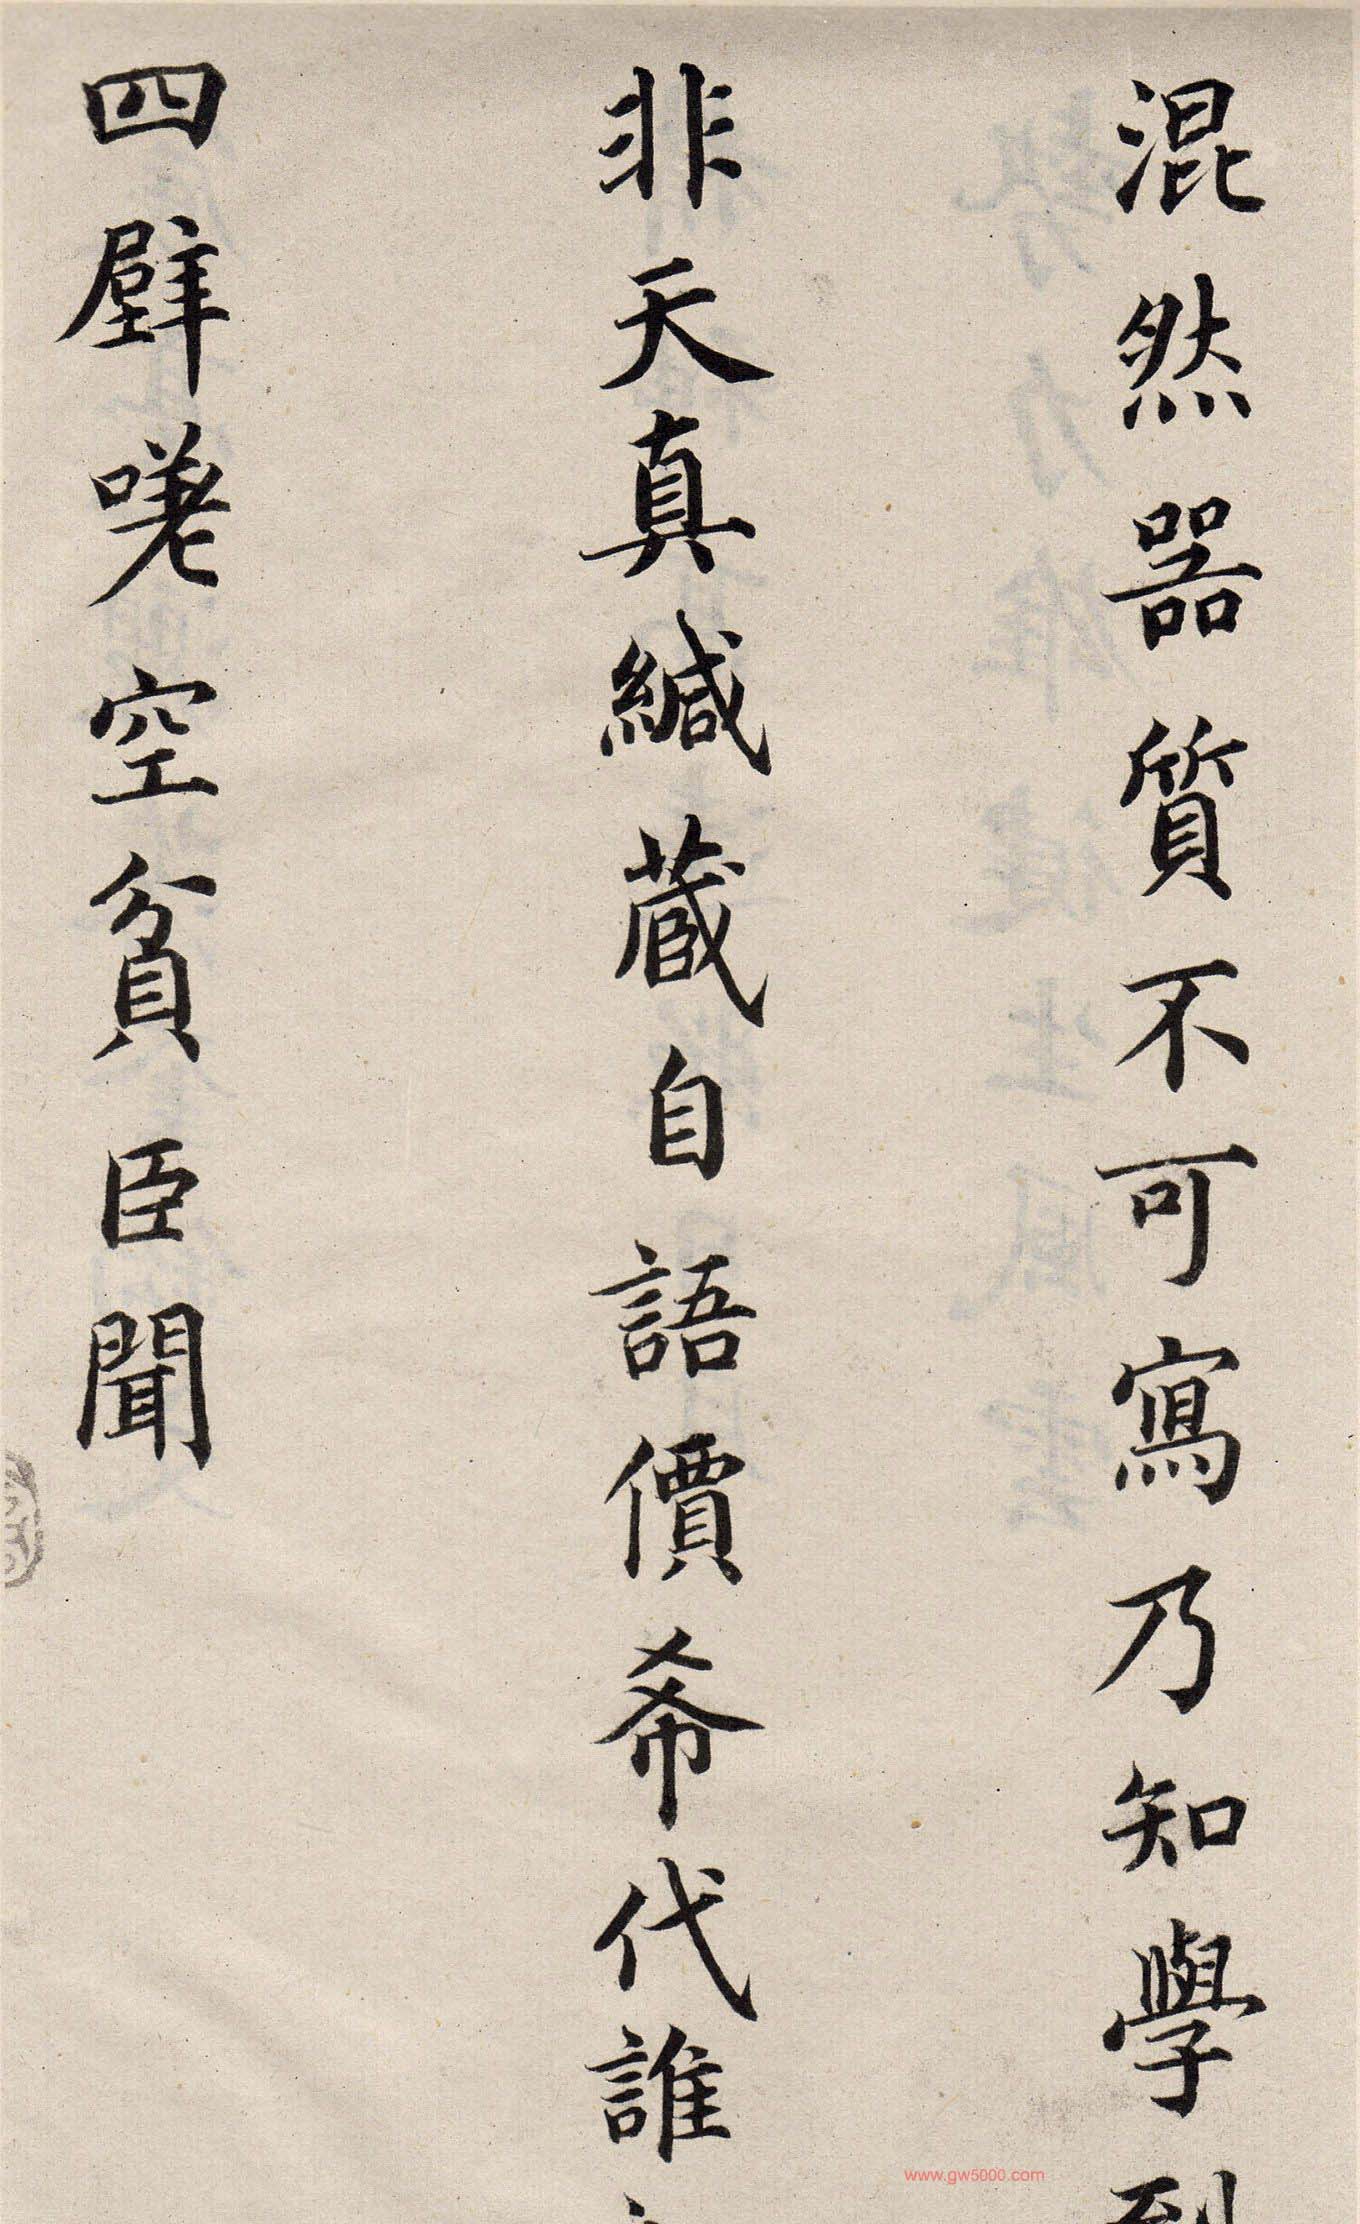 混然器質不可寫乃知學到
非天真緘蔵自語價希代誰
四壁嘆空貧臣聞
www.gw5000.com